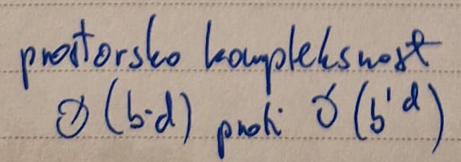 prostorsko kompleksnost
O(b·d) proti O(b'd)